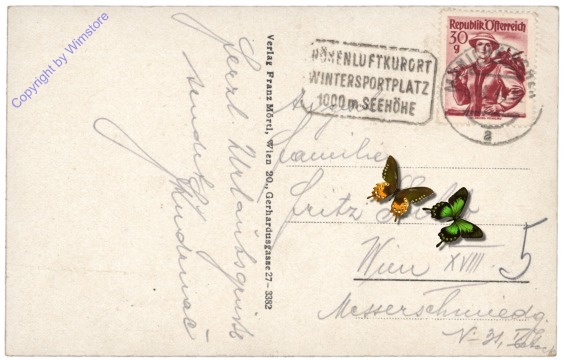 Copyright by Wimstore
Herzl. Urlaubsgrüße
sendet
Verlag Franz Mörtl, Wien 20., Gerhardusgasse 27 – 3382
HÖHENLUFTKURORT
WINTERSPORTPLATZ
1000 m SEEHÖHE
Republik Österreich
30
g
a
Familie
Fritz
Wien XVIII.
5
Messerschmiedg.
No 31,